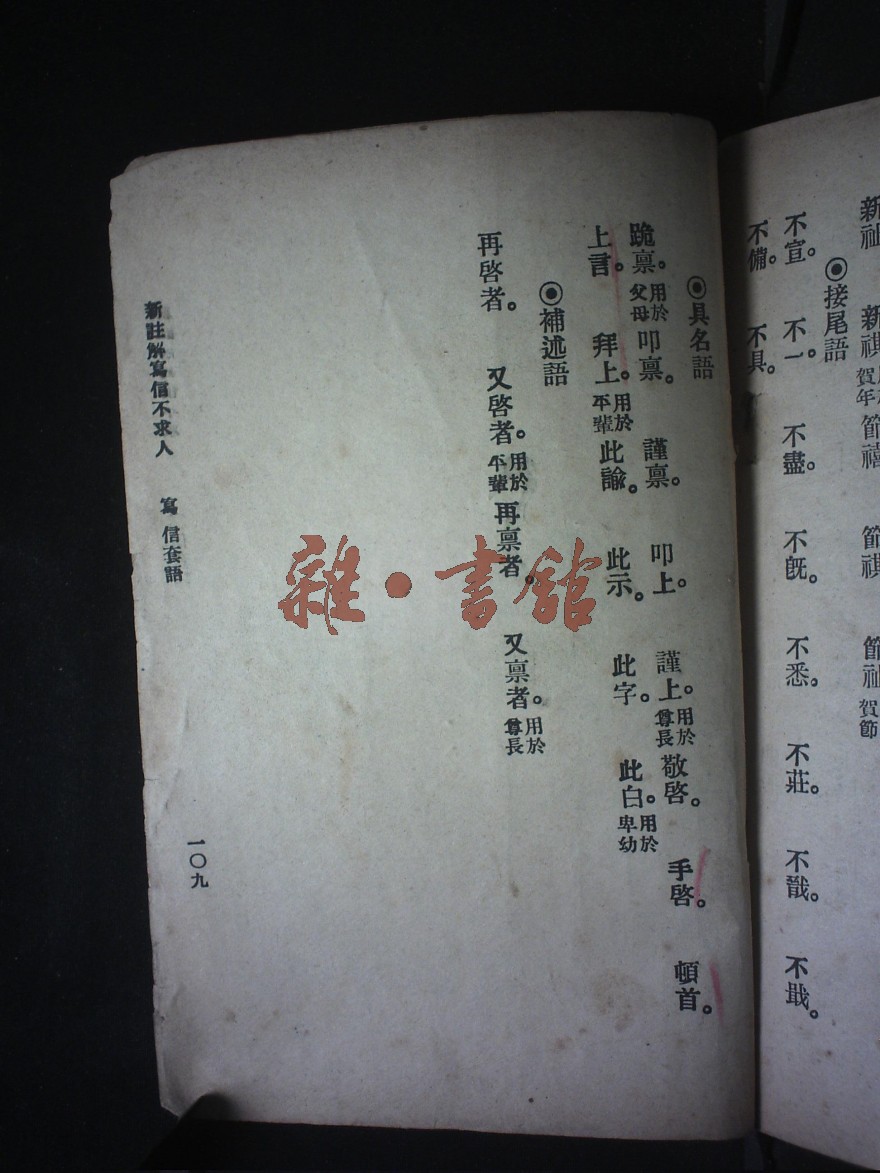 新祉 新祺賀年 節禧 節祺 節祉賀節
◉接尾語
不宣。不一。不盡。不旣。不悉。不莊。不戩。不戢。
不備。不具。
◉具名語
跪禀。用於父母 叩禀。謹禀。叩上。謹上。用於尊長 敬啓。手啓。頓首。
上言。拜上。用於平輩 此諭。此示。此字。此白。用於卑幼
◉補述語
再啓者。又啓者。用於平輩 再禀者。又禀者。用於尊長
新註解寫信不求人 寫信套語
一〇九
雜·書館